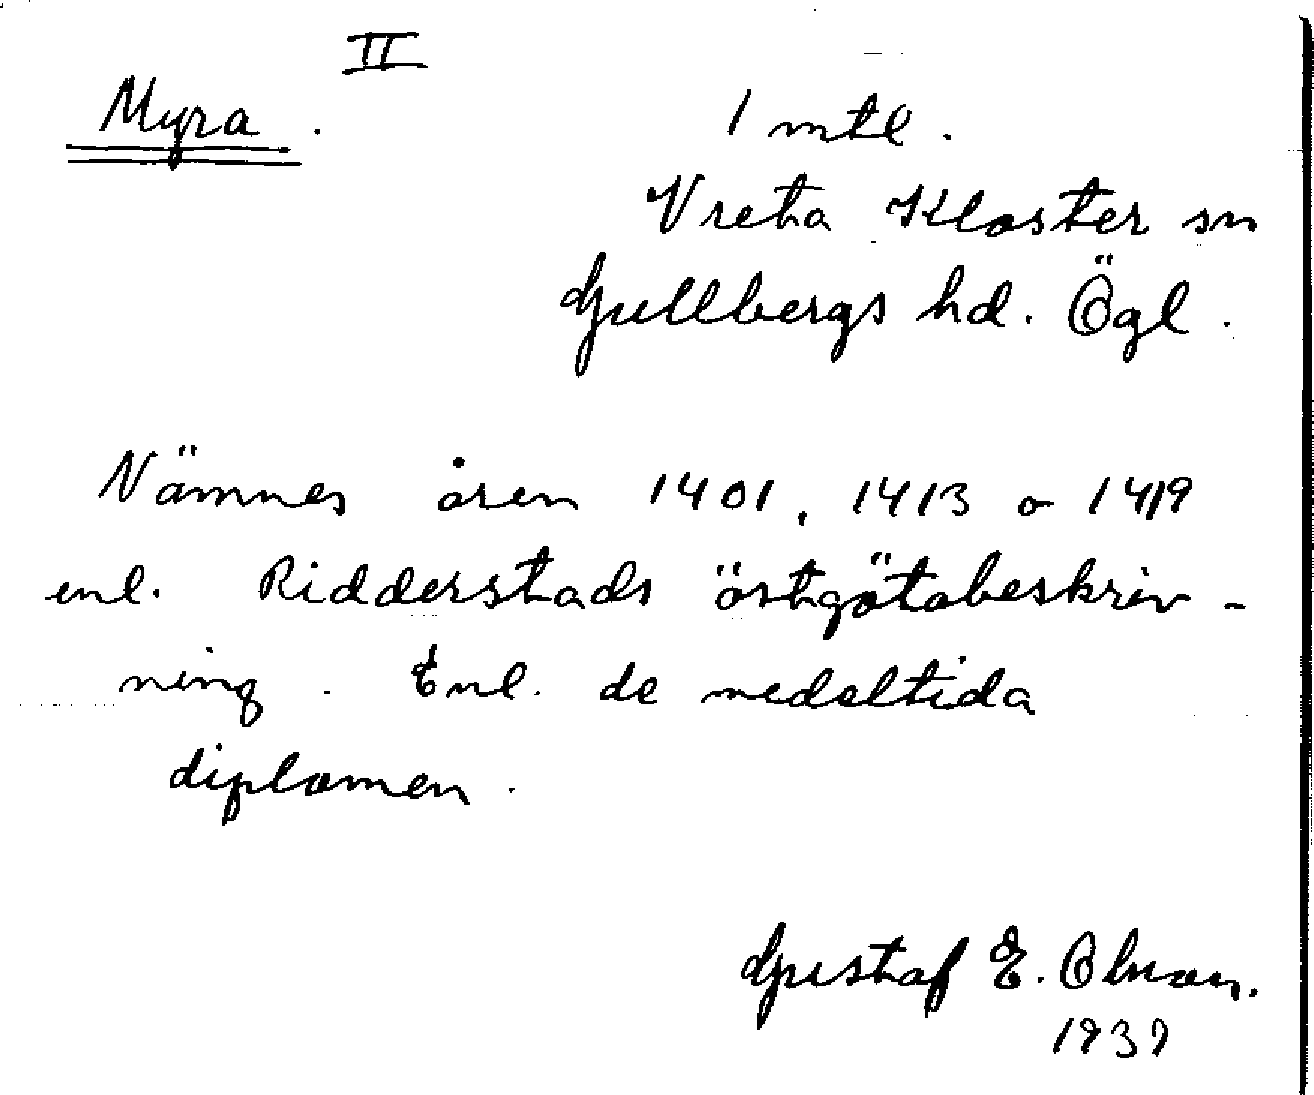 II
Myra.
1 mtl.
Vreta Kloster sn
Gullbergs hd. Ögl.
Nämnes åren 1401, 1413 o 1419
enl. Ridderstads östgötabeskriv-
ning. Enl. de medeltida
diplomen.
Gustaf E.
1939